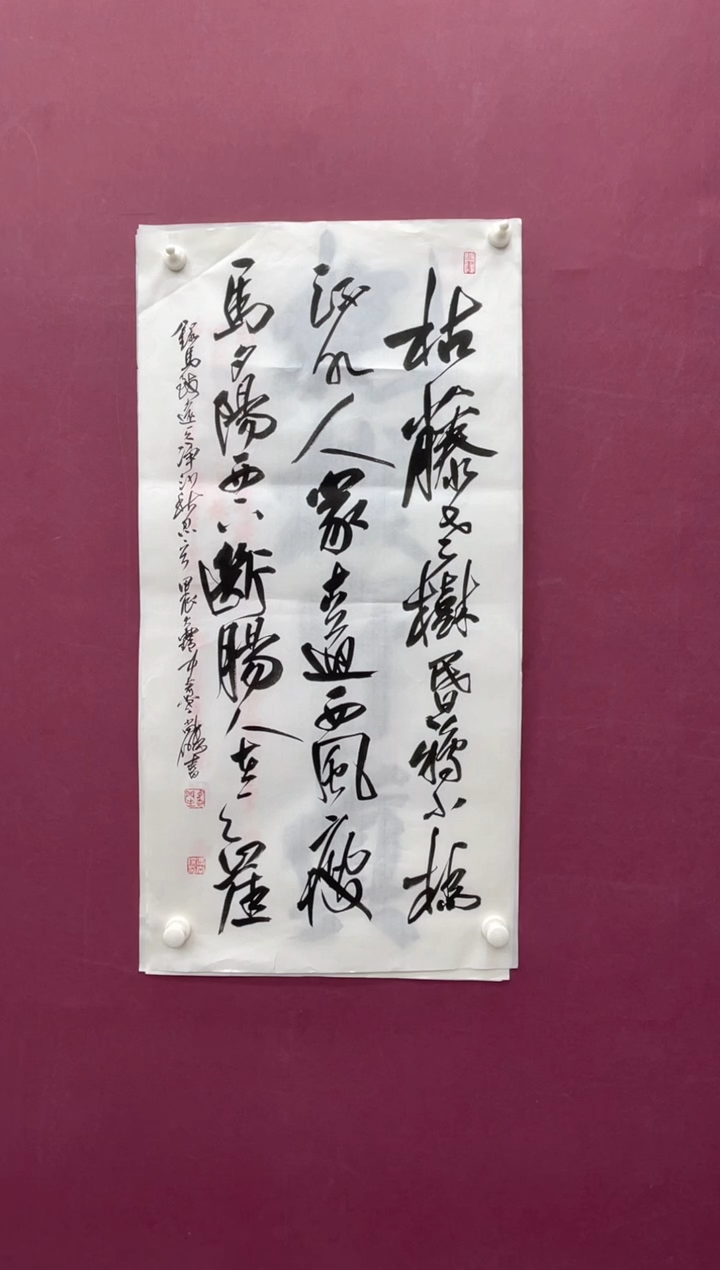 枯藤老樹昏鴉小橋
流水人家古道西風瘦
馬夕陽西下斷腸人在天崖
錄馬致遠天淨沙秋思
書